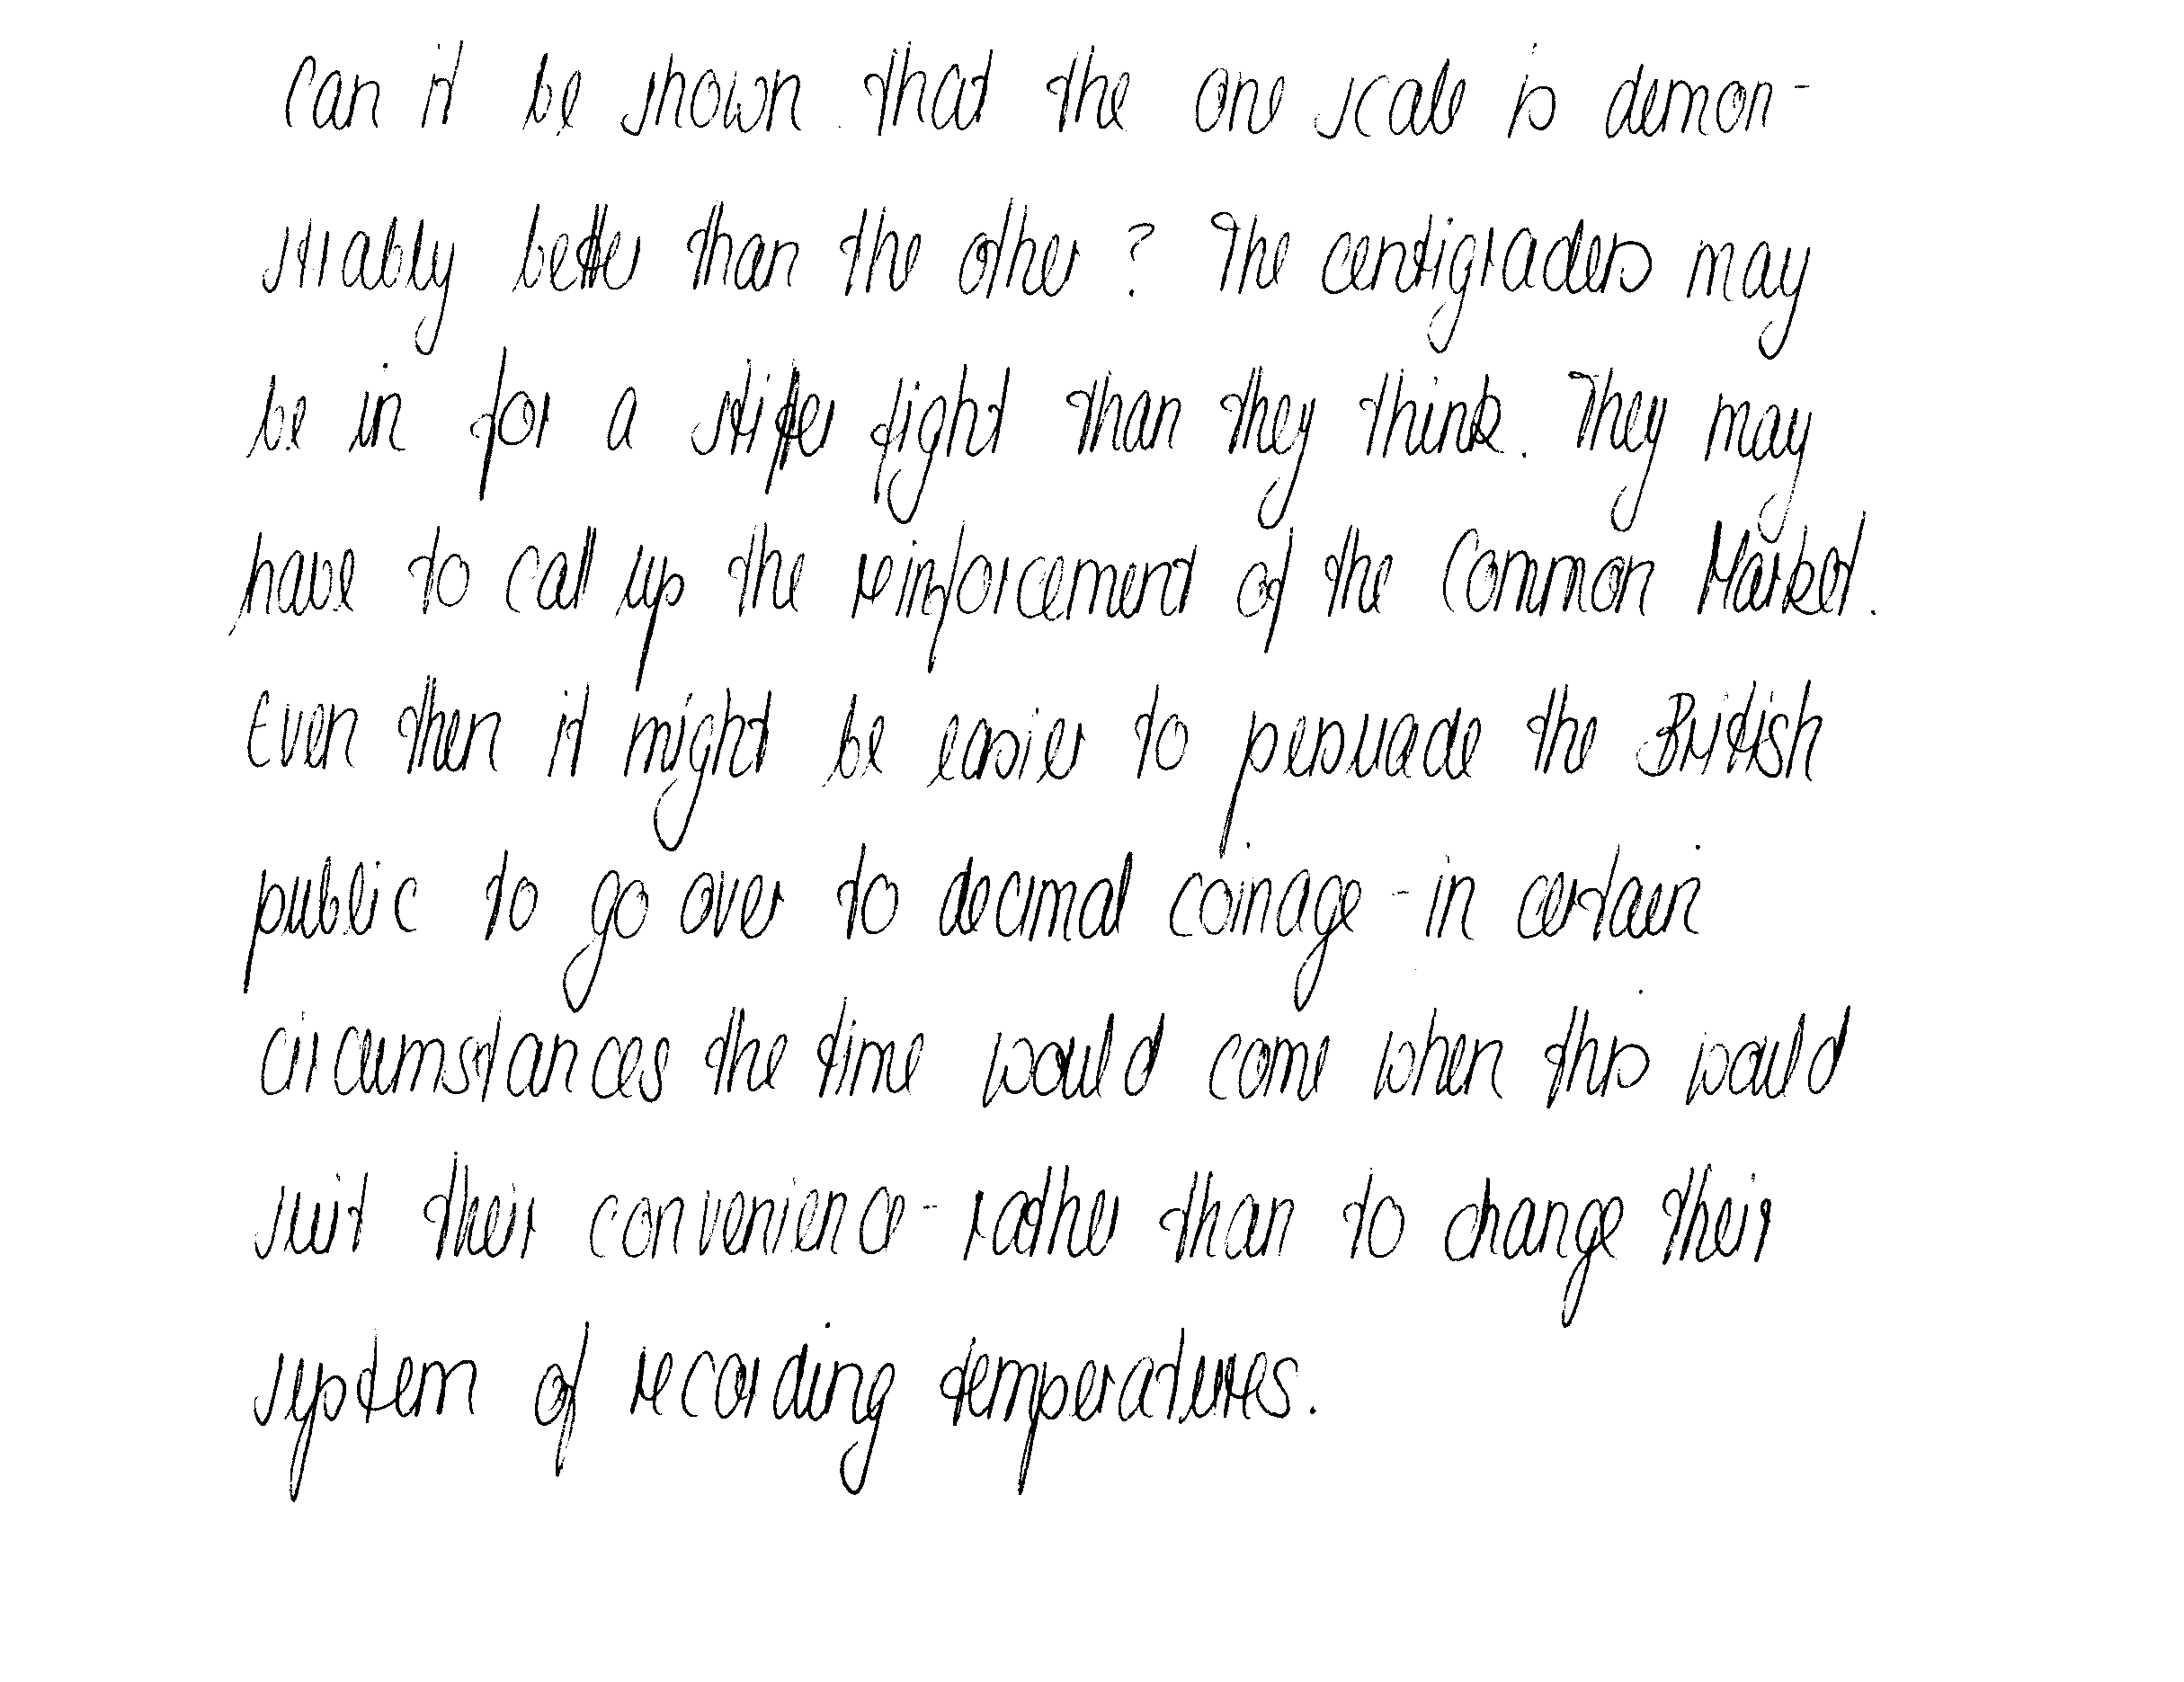 Can it be shown that the one scale is demon-
strably better than the other? The centigraders may
be in for a stiffer fight than they think. They may
have to call up the reinforcement of the Common Market.
Even then it might be easier to persuade the British
public to go over to decimal coinage - in certain
circumstances the time would come when this would
suit their convenience - rather than to change their
system of recording temperatures.